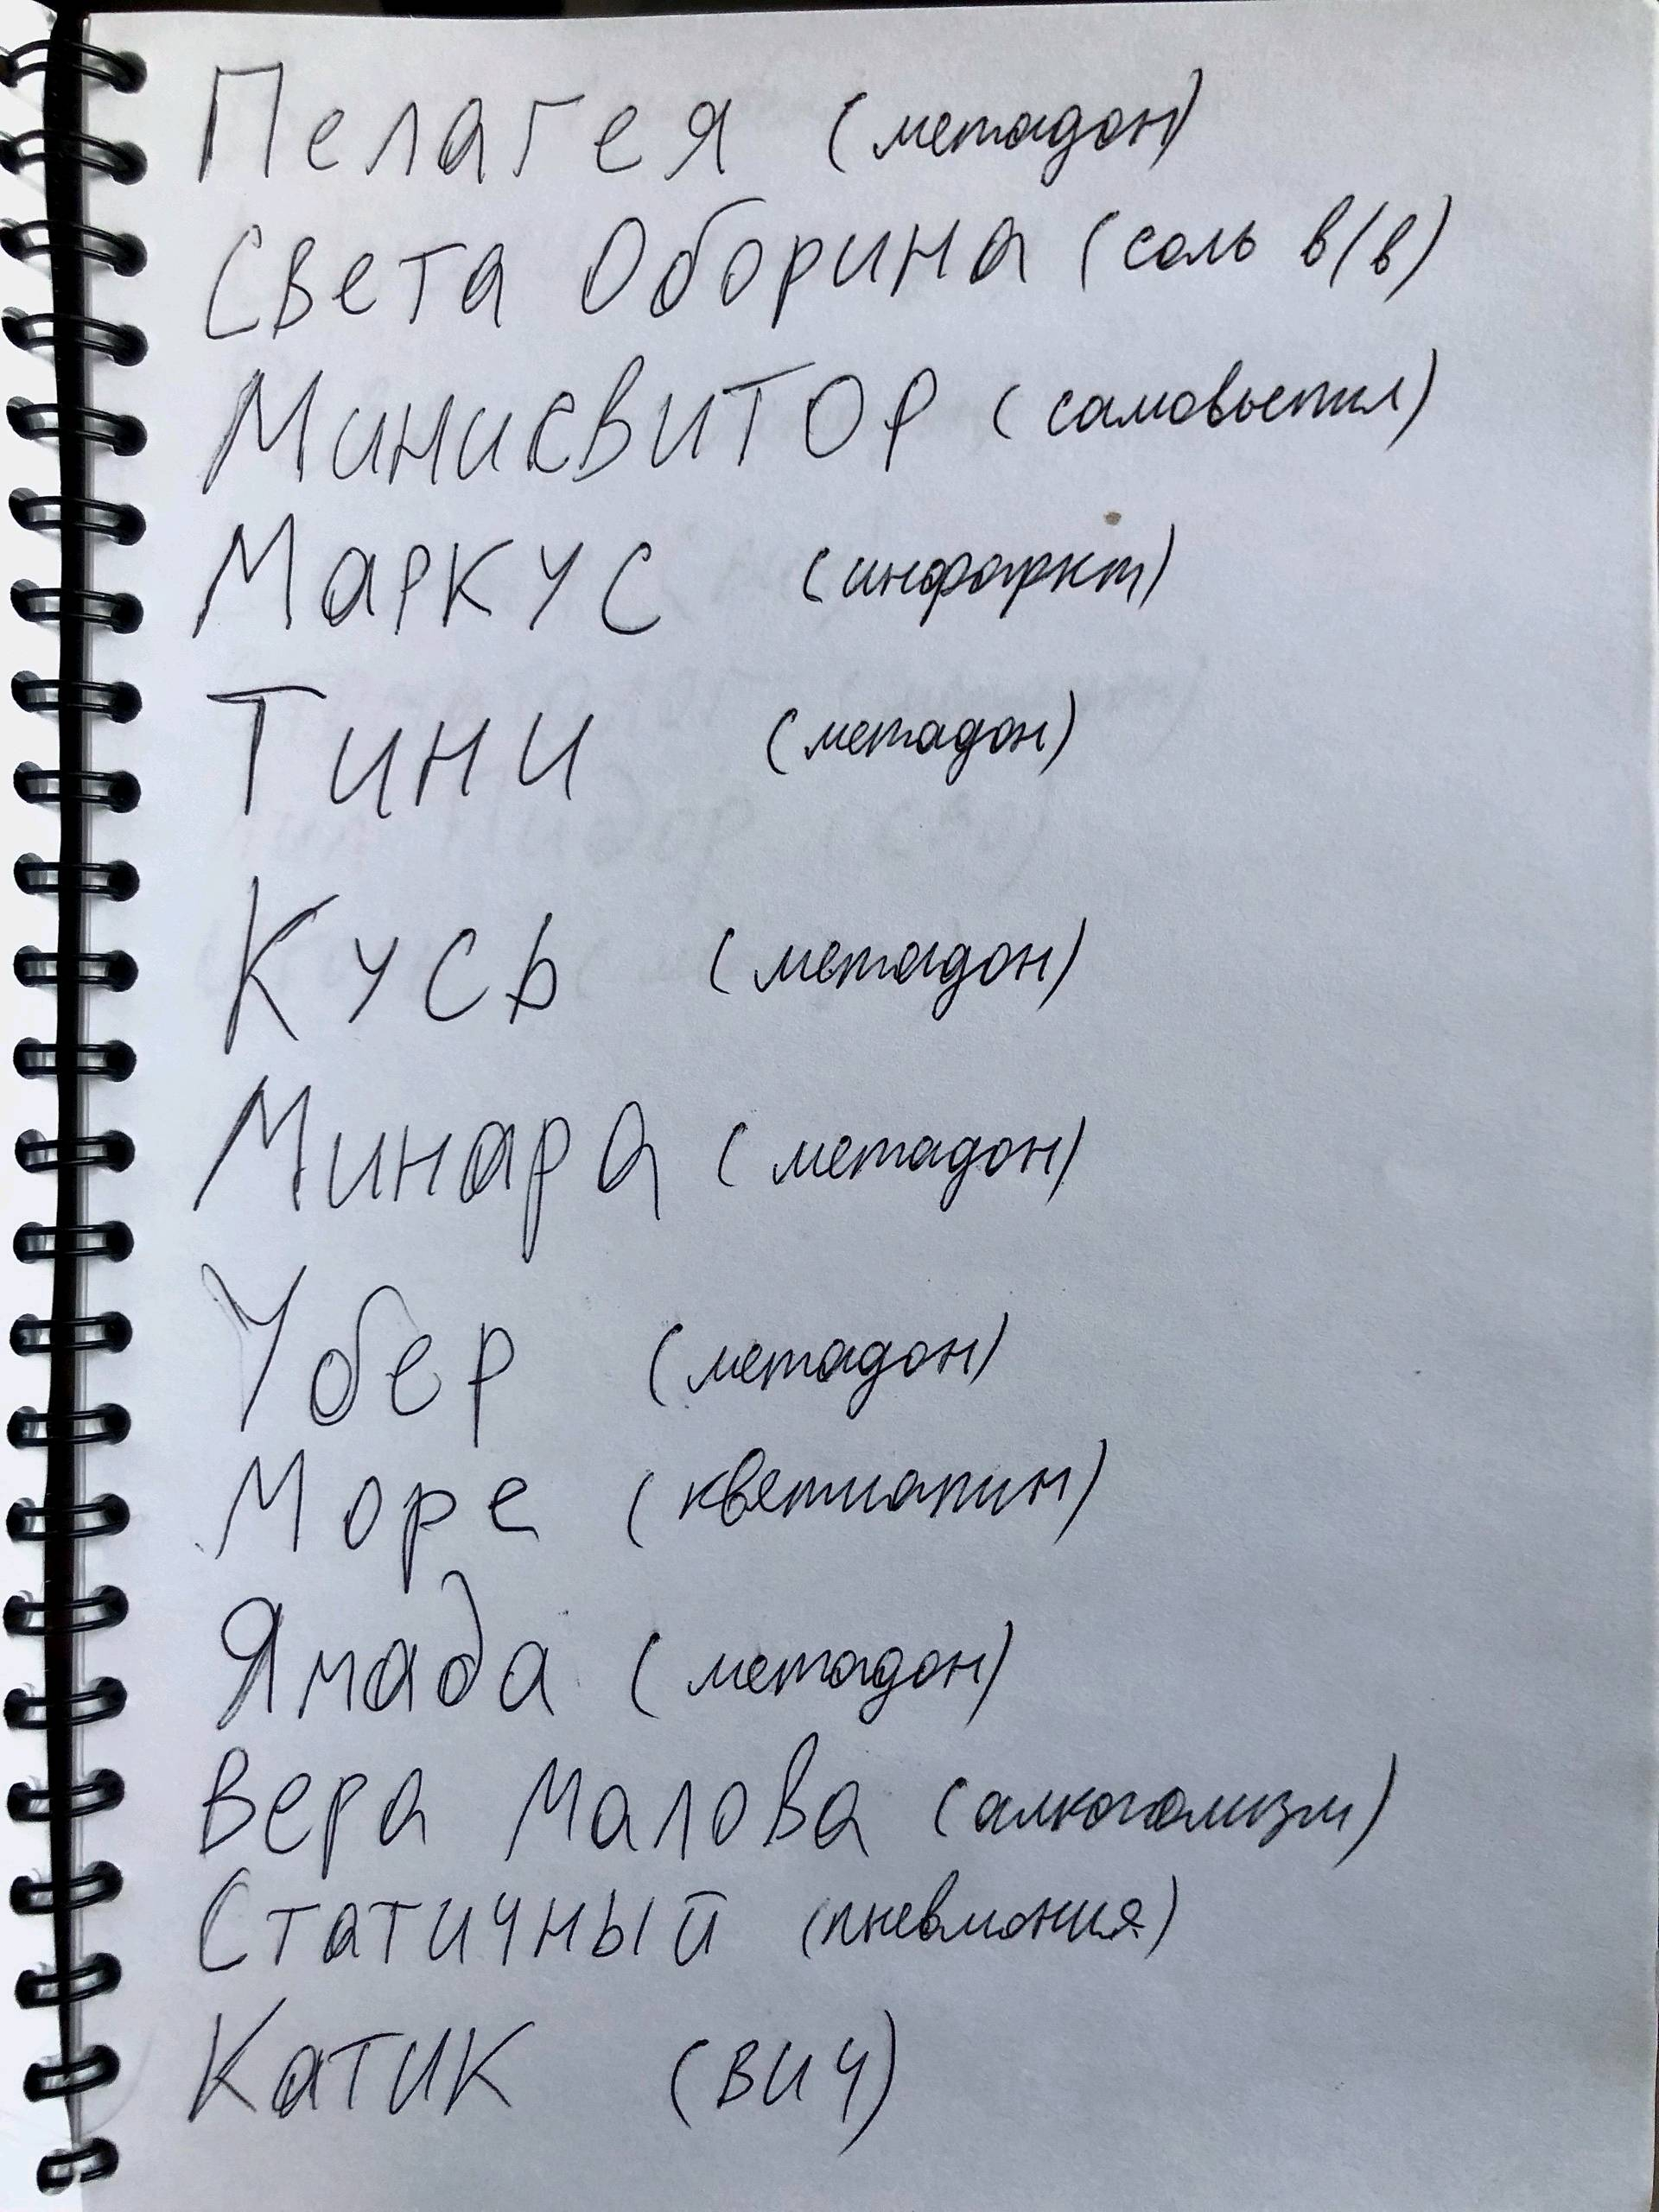 Пелагея (метадон)
Света Оборина (соль в/в)
Минисвитор (самовыпил)
Маркус (инфаркт)
Тини (метадон)
Кусь (метадон)
Минара (метадон)
Убер (метадон)
Море (кветиапин)
Ямада (метадон)
Вера Малова (алкоголизм)
Статичный (пневмония)
Катик (ВИЧ)